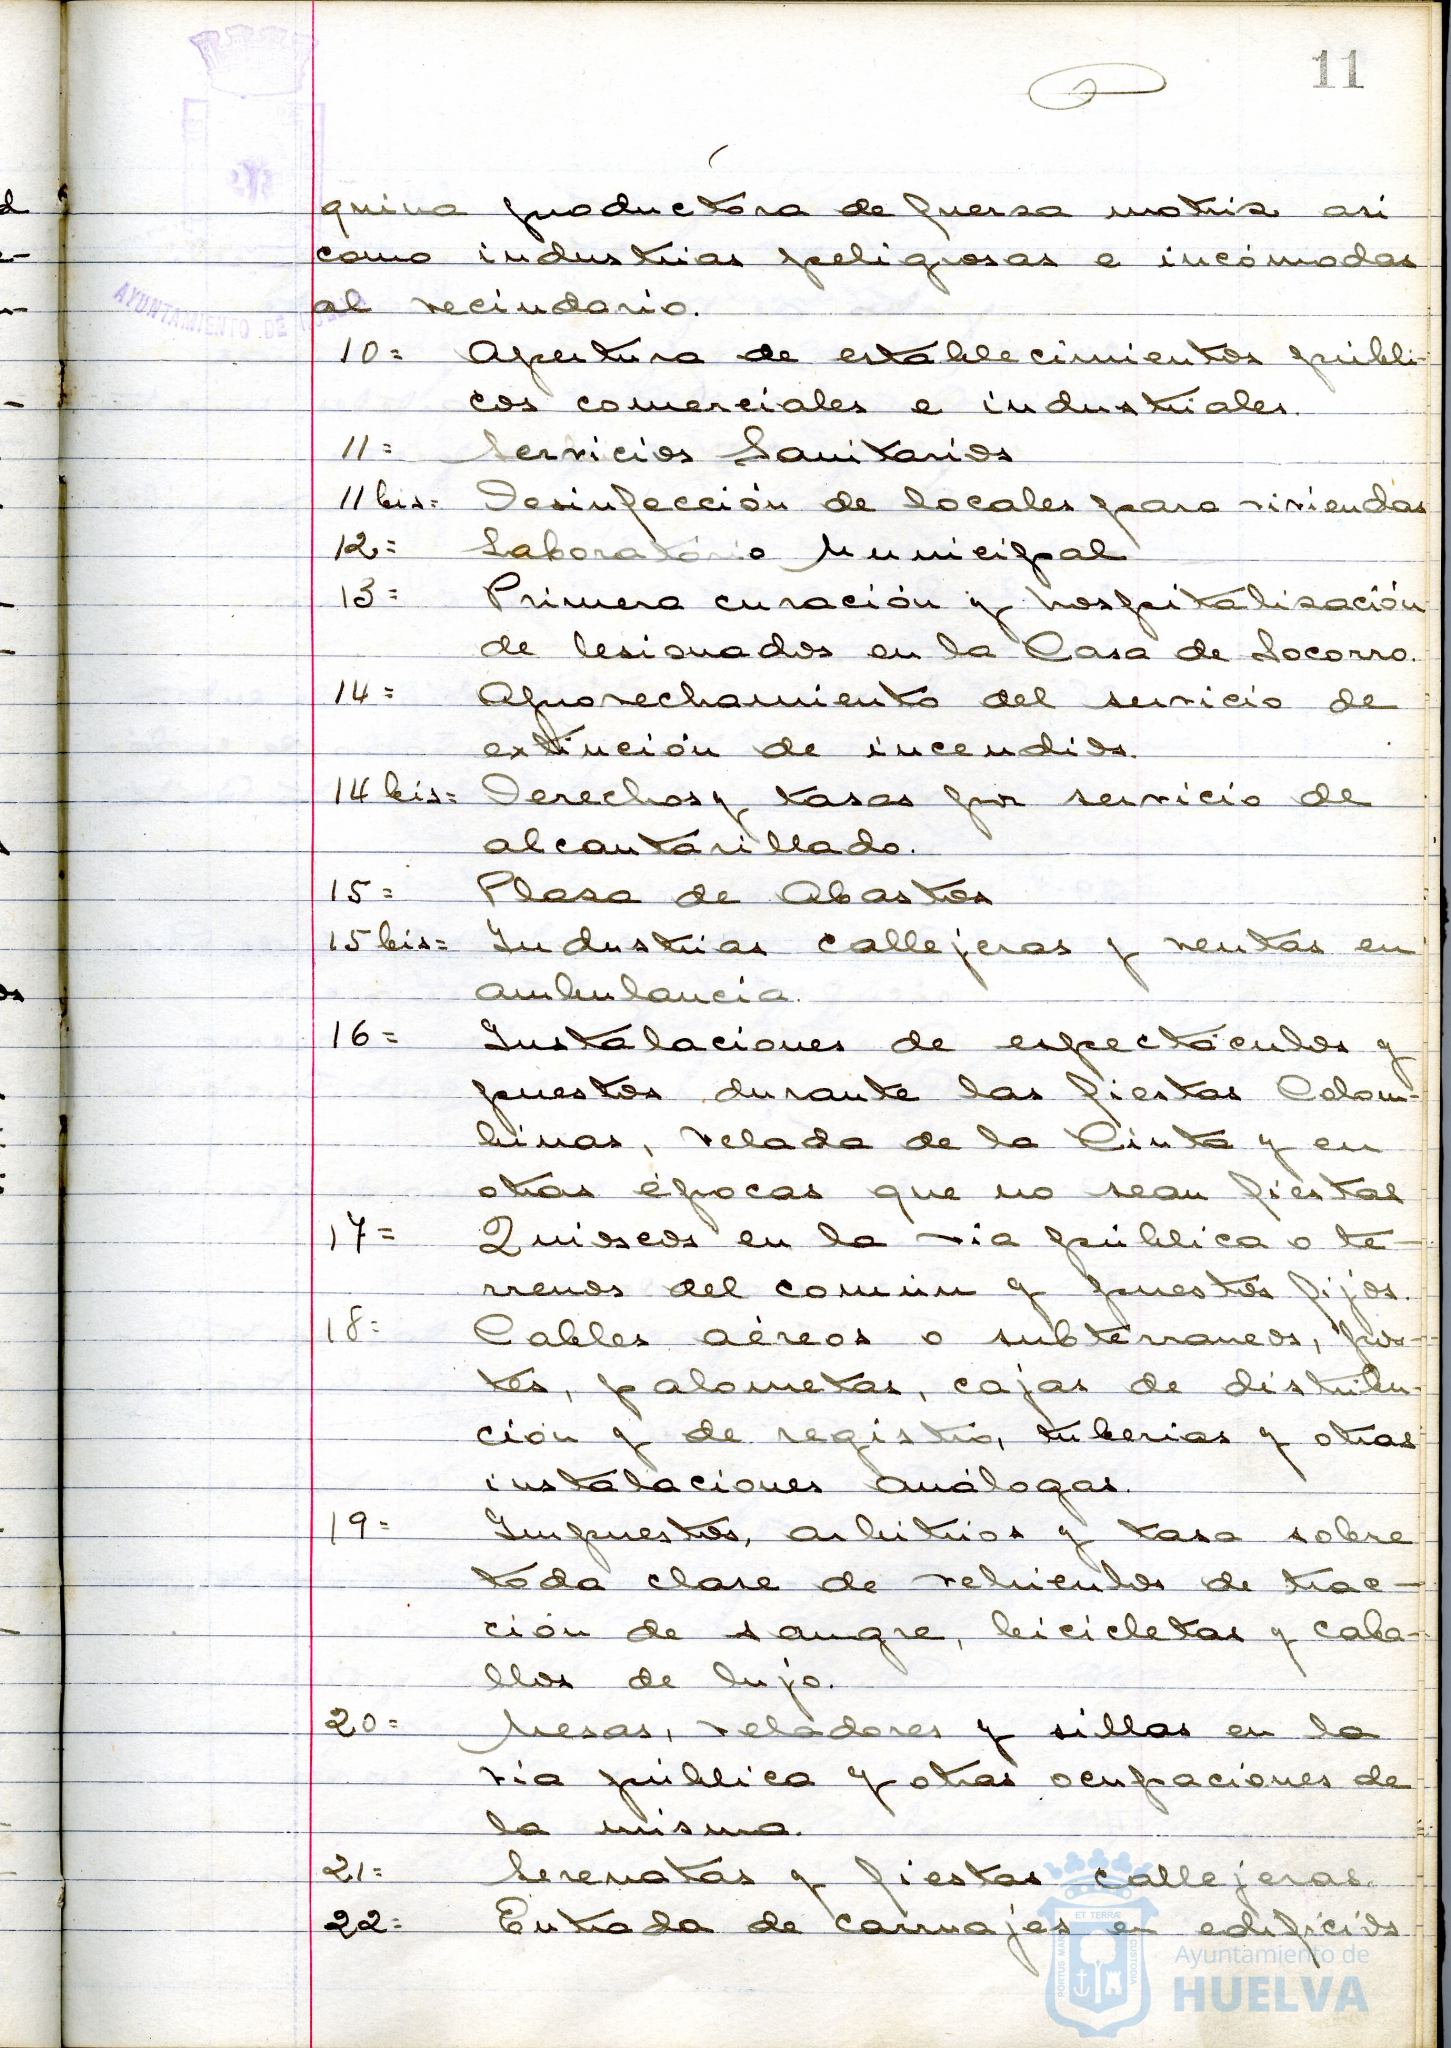 11
quina productora de fuersa motriz asi
como industrias peligrosas e incómodas
al vecindario.
10= Apertura de establecimientos públi-
cos comerciales e industriales.
11= Servicios Sanitarios
11 bis= Desinfección de locales para viviendas
12= Laboratório Municipal
13= Primera curación y hospitalisación
de lesionados en la Casa de Socorro.
14= Aprovechamiento del servicio de
extinción de incendios.
14 bis= Derechos y tasas por servicio de
alcantarillado.
15= Plasa de Abastos
15 bis= Industrias callejeras y ventas en
ambulancia.
16= Instalaciones de espectáculos y
puestos durante las fiestas Colom-
binas, velada de la Cinta y en
otras épocas que no sean fiestas
17= Quioscos en la via pública o te-
rrenos del común y puestos fijos.
18= Cables aéreos o subterraneos, pos-
tes, palometas, cajas de distribu-
ción y de registro, tuberias y otras
instalaciones análogas.
19= Impuestos, arbitrios y tasa sobre
toda clase de vehiculos de trac-
ción de sangre, bicicletas y caba-
llos de lujo.
20= Mesas, veladores y sillas en la
via pública y otras ocupaciones de
la misma.
21= Serenatas y fiestas callejeras.
22= Entrada de carruajes en edificios
AYUNTAMIENTO DE HUELVA
PORTUS MARIS ET TERRÆ CUSTODIA
Ayuntamiento de
HUELVA